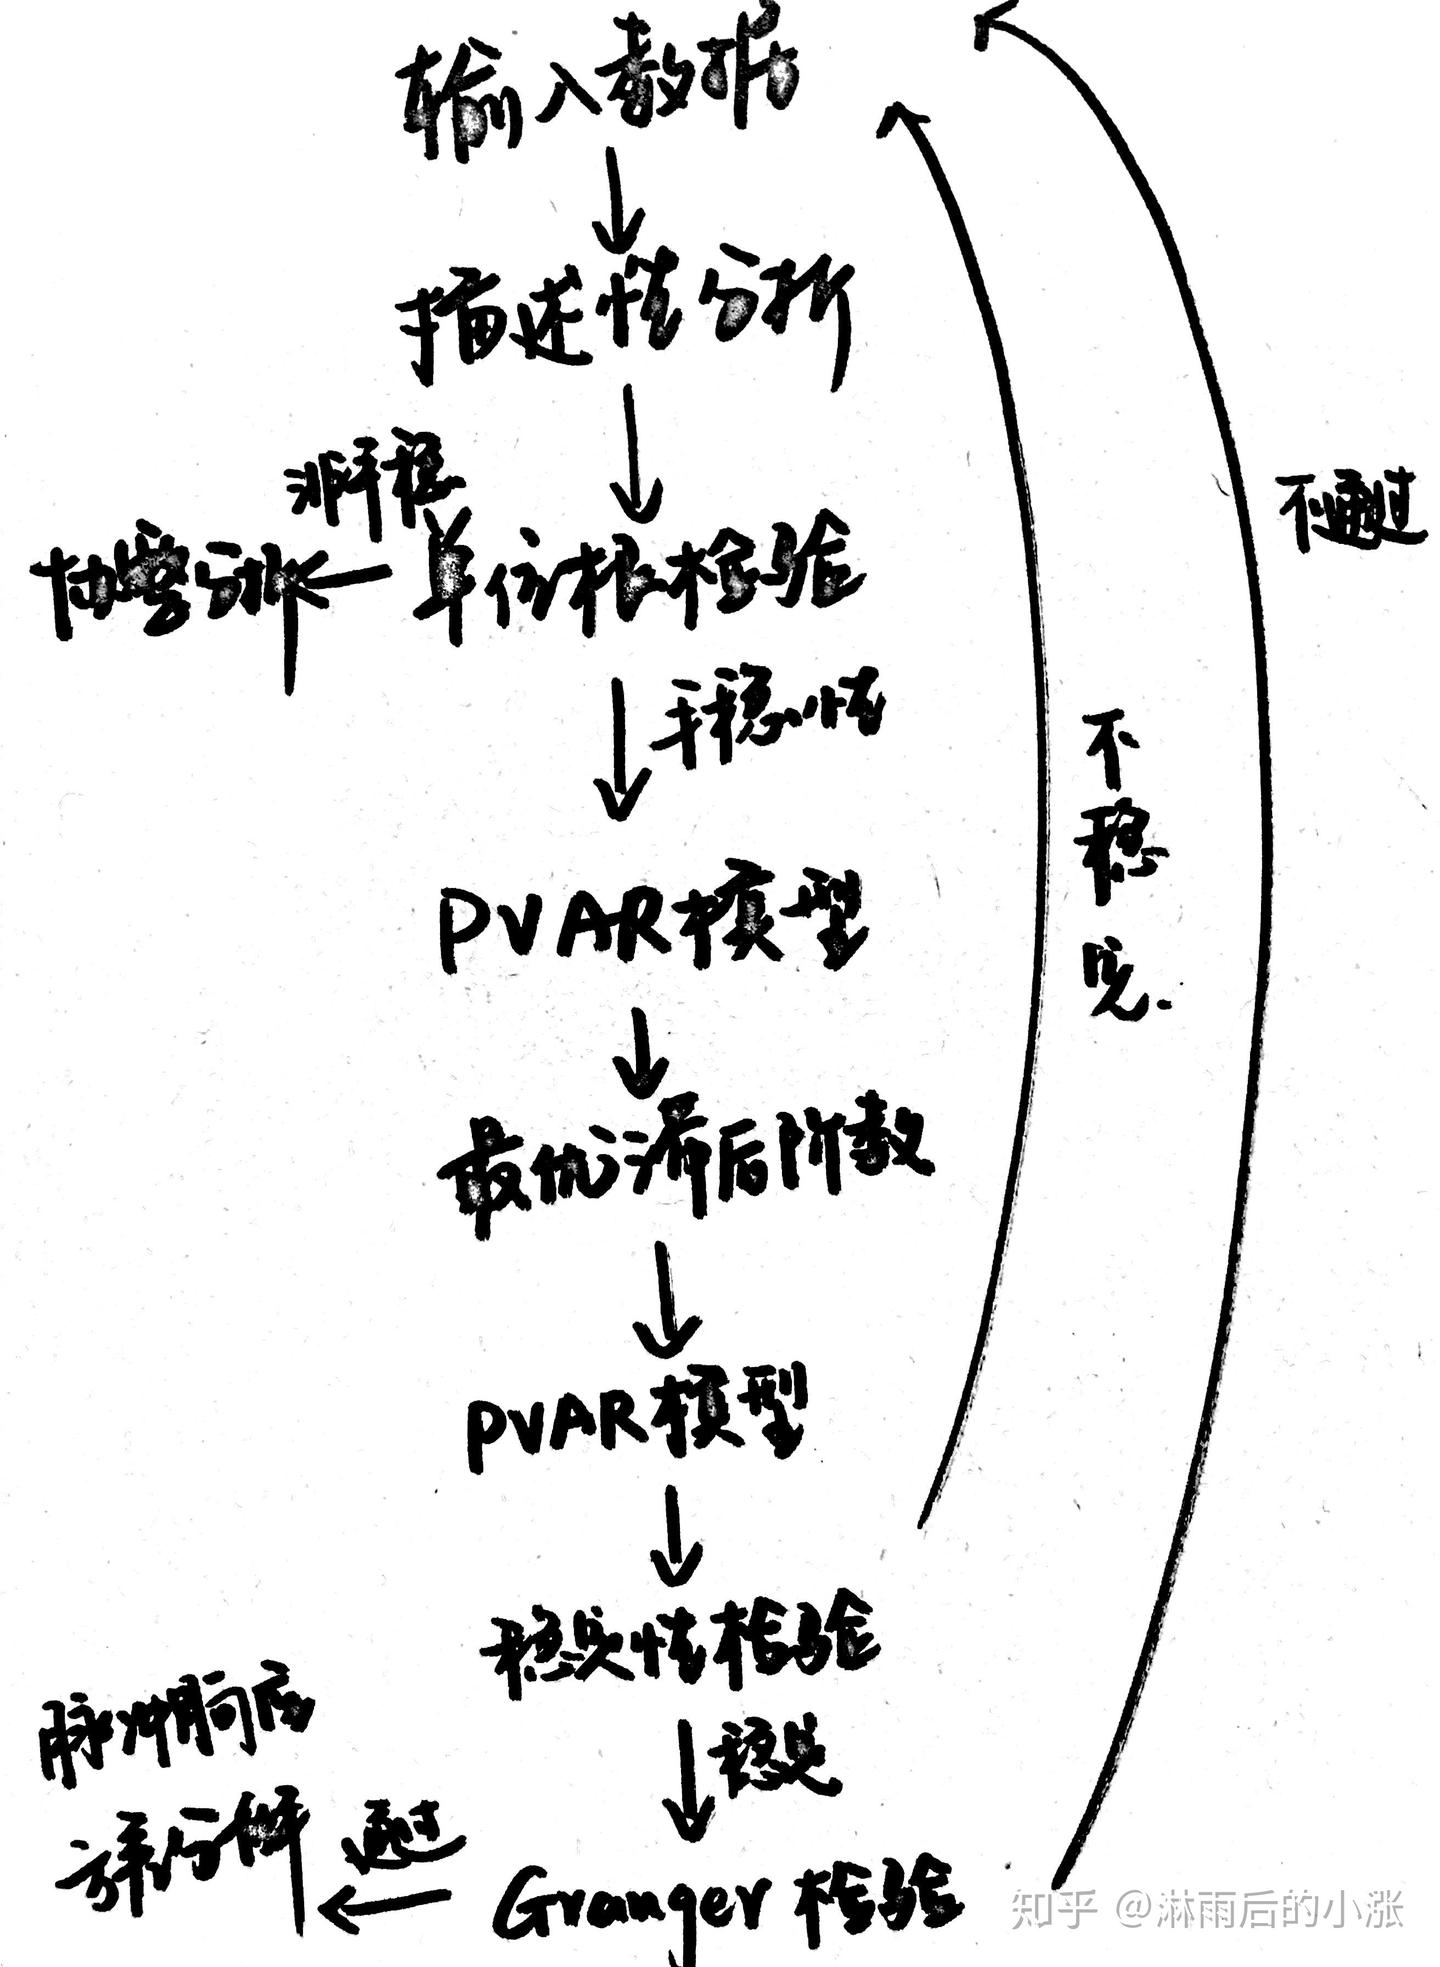 输入数据
描述性分析
非平稳
协整分析
单位根检验
平稳性
不通过
不稳定
PVAR模型
最优滞后阶数
PVAR模型
稳定性检验
稳定
脉冲响应
方差分解
通过
Granger检验
知乎 @淋雨后的小涨